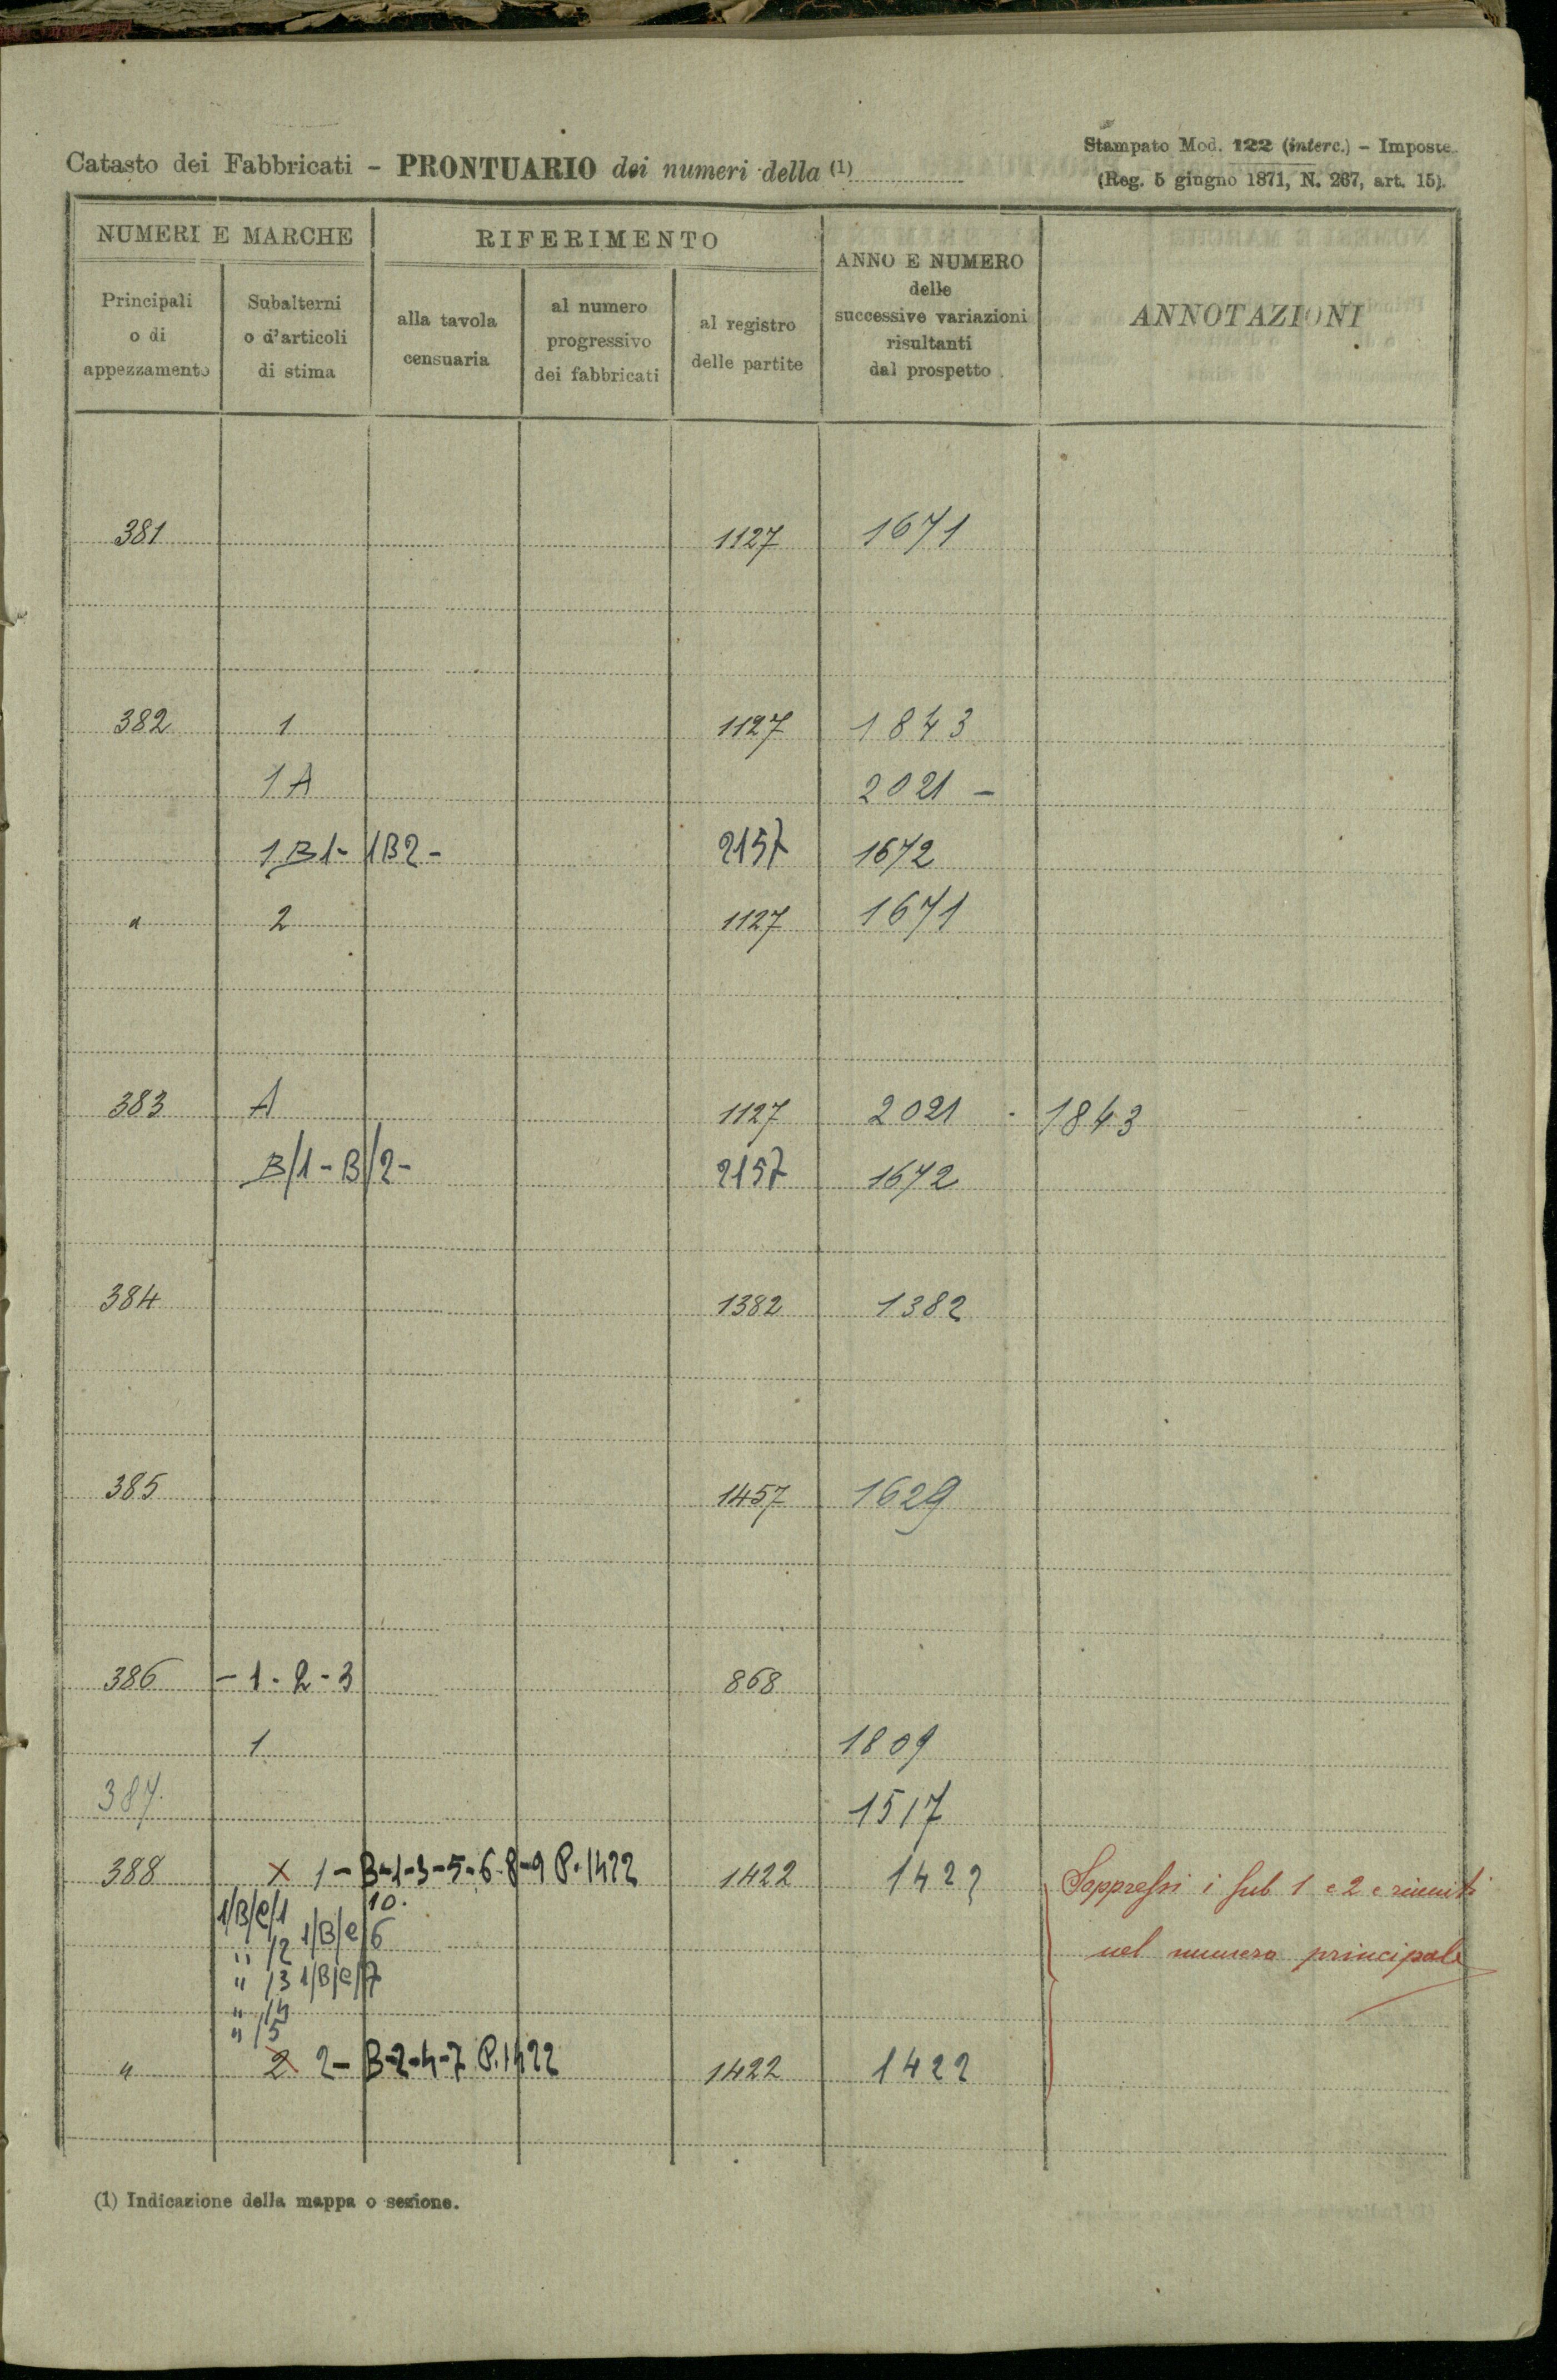 Catasto dei Fabbricati - PRONTUARIO dei numeri della (1)
Stampato Mod. 122 (interc.) - Imposte.
(Reg. 5 giugno 1871, N. 267, art. 15).
NUMERI E MARCHE
RIFERIMENTO
ANNO E NUMERO
delle
successive variazioni
risultanti
dal prospetto
ANNOTAZIONI
Principali
o di
appezzamento
Subalterni
o d'articoli
di stima
alla tavola
censuaria
al numero
progressivo
dei fabbricati
al registro
delle partite
381 1127 1671
382 1 1127 1843
1A 2021 -
1B1- 1B2- 2157 1672
" 2 1127 1671
383 A 1127 2021 - 1843
B/1 - B/2- 2157 1672
384 1382 1382
385 1457 1629
386 - 1 - 2 - 3 868
1 1809
387. 1517
388 X 1 - B-1-3-5-6-8-9 P. 1422 1422 1422 Soppressi i sub 1 e 2 e riuniti
10.
1/B/e/1
" /2 1/B/e/6 nel numero principale
" /3 1/B/e/7
" /4
" /5
" 2 2 - B-2-4-7 P. 1422 1422 1422
(1) Indicazione della mappa o sezione.